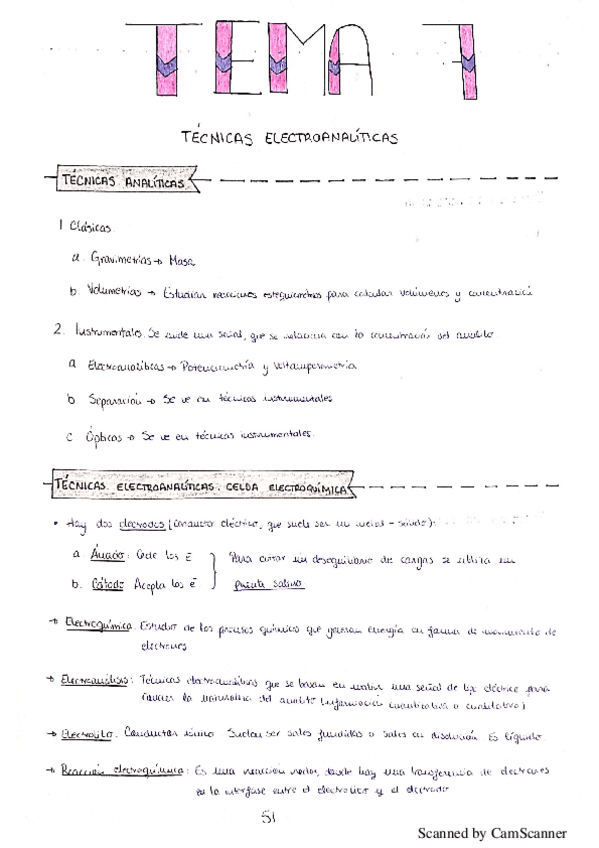 TEMA 7
TÉCNICAS ELECTROANALÍTICAS
TÉCNICAS ANALÍTICAS
1 Clásicas.
a. Gravimetrías → Masa
b. Volumetrías → Estudian reacciones estequiométricas para calcular volúmenes y concentración
2. Instrumentales. Se mide una señal, que se relaciona con la concentración del analito.
a Electroanalíticas → Potenciometría y Voltamperometría
b Separación → Se ve en técnicas instrumentales
c Ópticas → Se ve en técnicas instrumentales.
TÉCNICAS ELECTROANALÍTICAS. CELDA ELECTROQUÍMICA
• Hay dos electrodos (conductor eléctrico, que suele ser un metal - sólido):
a Ánodo: Cede los e- Para evitar un desequilibrio de cargas se utiliza un
b. Cátodo Acepta los e- puente salino
→ Electroquímica. Estudio de los procesos químicos que generan energía en forma de movimiento de
electrones
→ Electroanálisis: Técnicas electroanalíticas que se basan en medir una señal de tipo eléctrico para
conocer la naturaleza del analito (información cuantitativa o cualitativa)
→ Electrolito. Conductor iónico Suelen ser sales fundidas o sales en disolución Es líquido.
→ Reacción electroquímica: Es una reacción redox, donde hay una transferencia de electrones
en la interfase entre el electrolito y el electrodo
51
Scanned by CamScanner